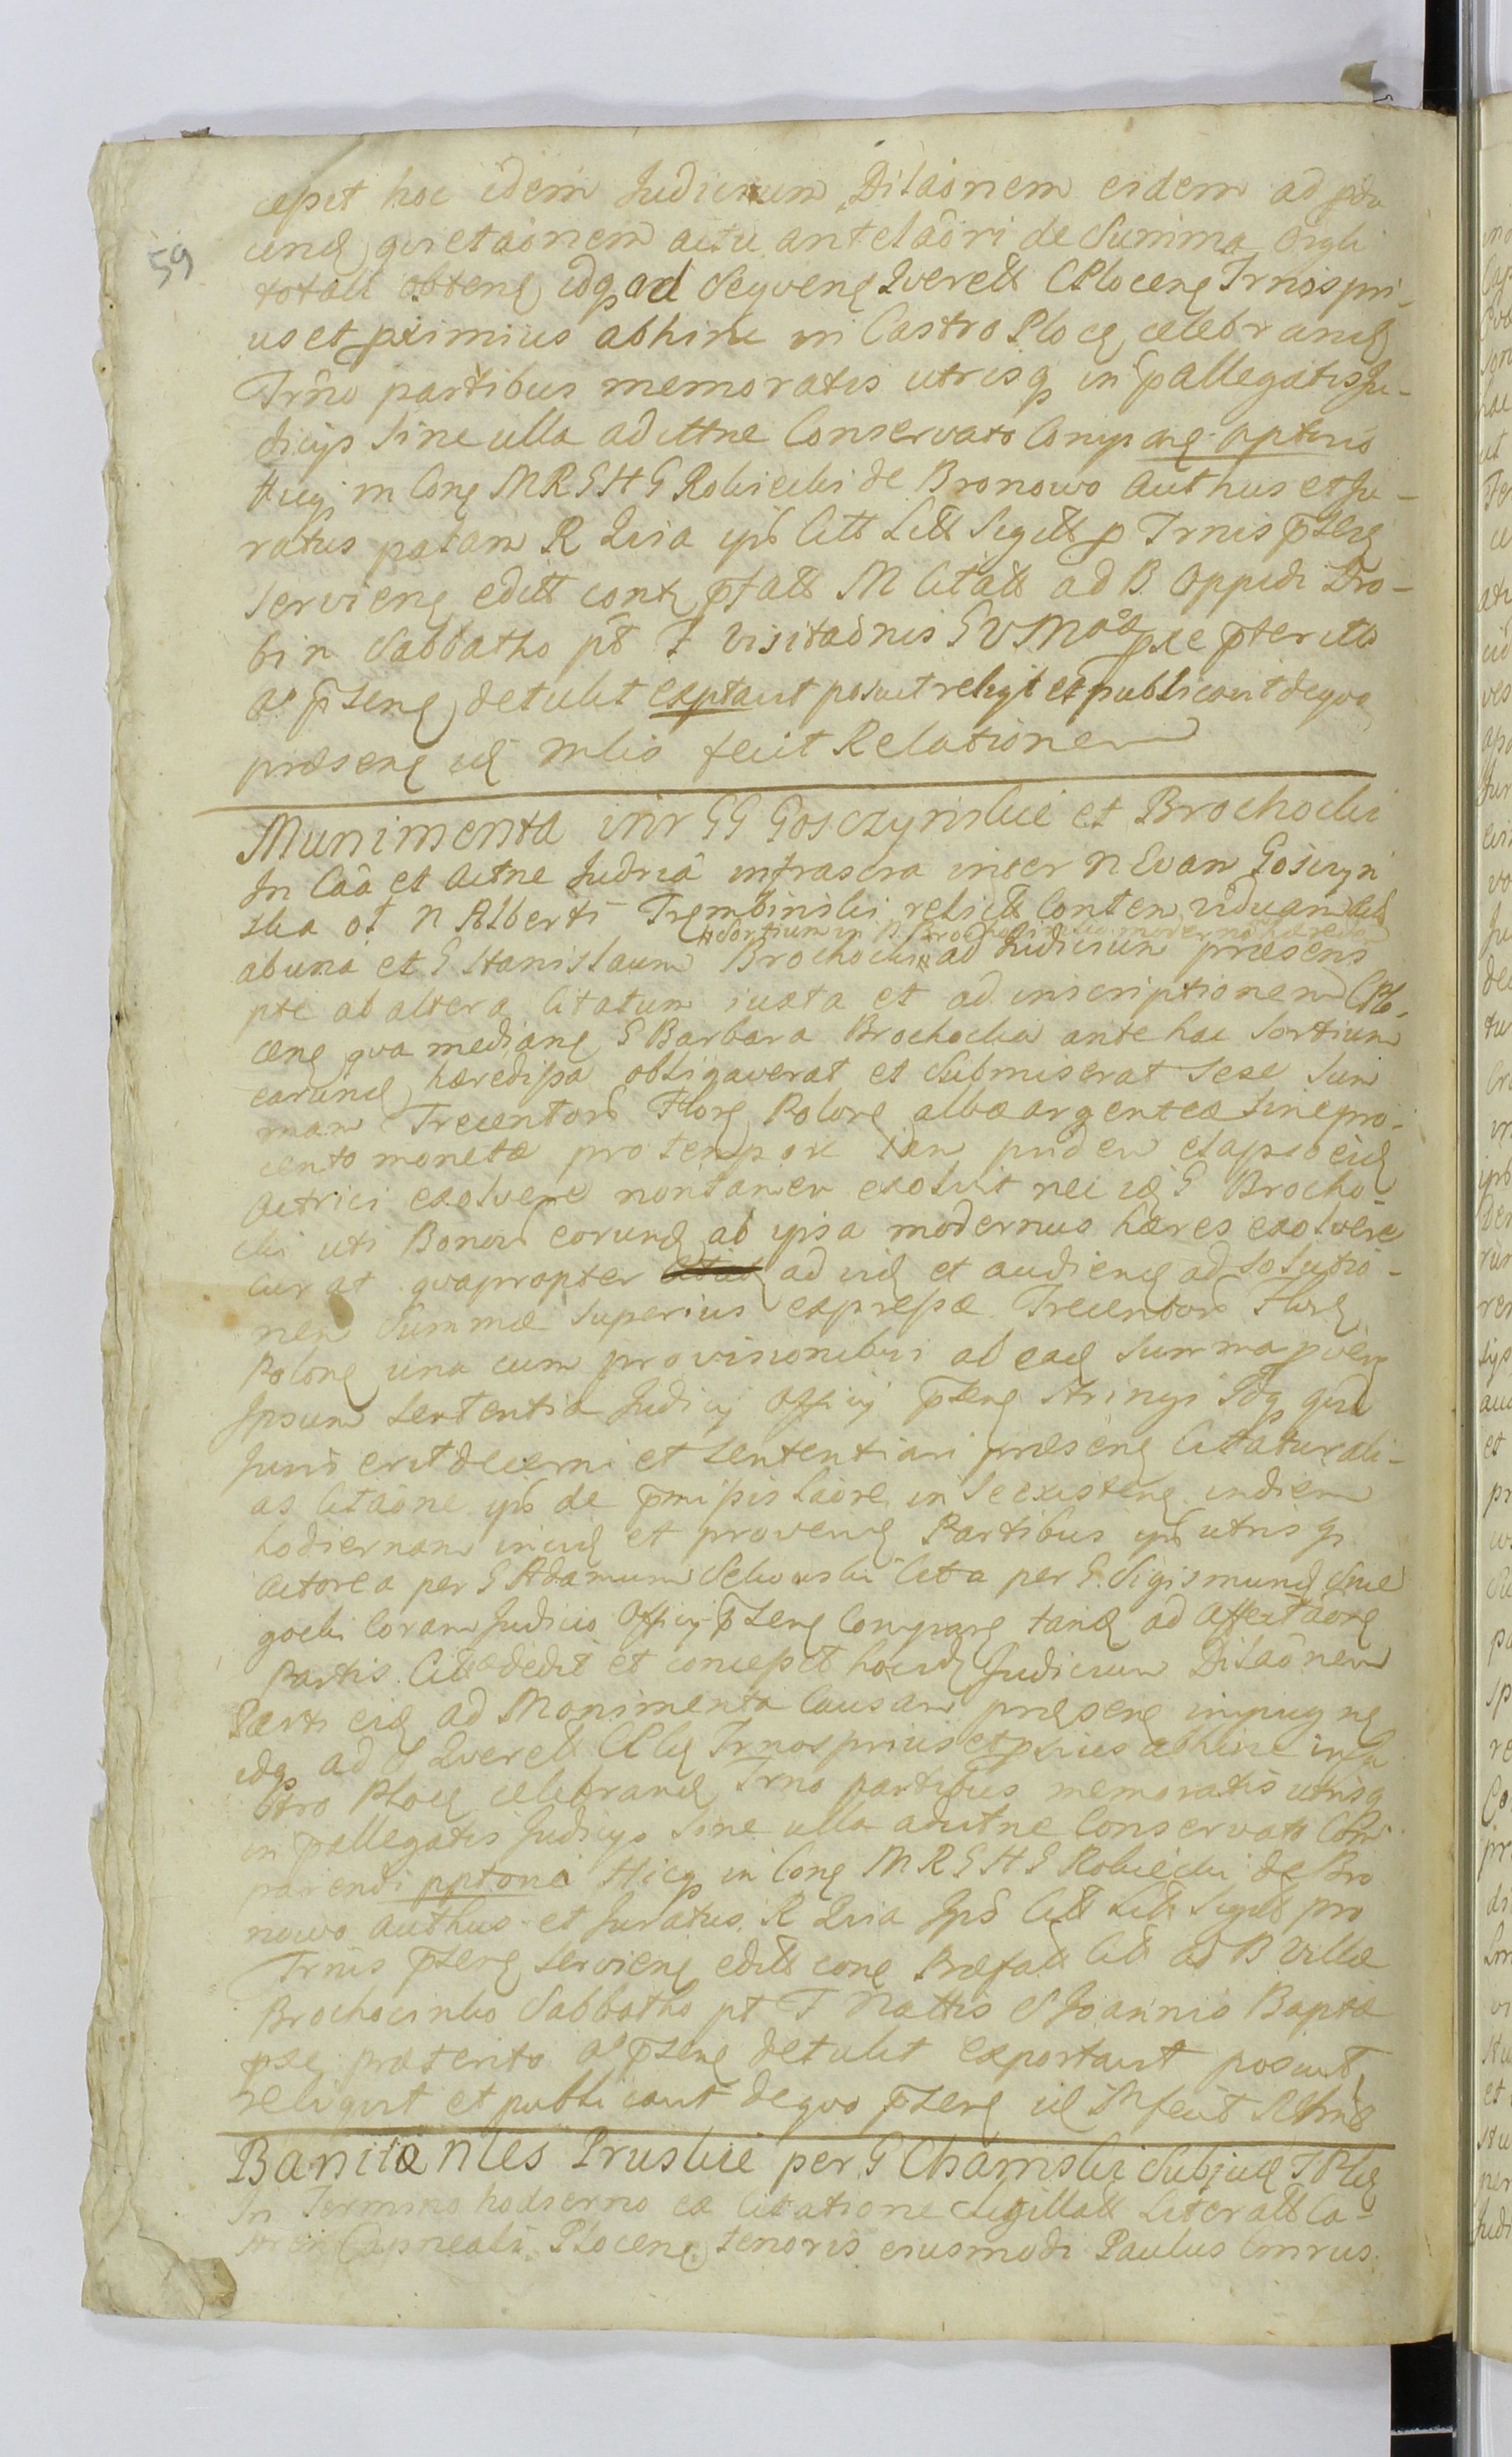 59
cepit hoc idem Judicium Dilãonem eidem ad pdu
cenđ quietãonem actu antelãori de Summa Orgli
totali obtenę idq ad Seqvenę Querell CPlocenę Trnos pri-
us et pximius abhinc in Castro Plocę celebranđ
Trño partibus memoratis utrisq in pallegatis Ju-
dicijs sine ulla adittne Conservato Comparę
Hicq in Conę M R G H G Robiecki de Bronowo Authus et Ju-
ratus palam R Lria ipš Citt Litt Sigitt p Trnis p̃senę
servienę editt conť p̃fatt M Citatt ad B. Oppidi Dro-
bin Sabbatho p̃t F Visitaõnis G V Maæ pxe p̃terito
ac p̃senę detulit exptavit posuit religit et publicavit de quo
præsenę iđ Mlis fecit Relationem
Munimenta intr GG Gosczynskie et Brochocki
In Cãa et Actne Judria infrascra inter N Evam Gosczyn
ska ol N Alberti Trembinski relictt Conten viduam
# Sortium in B. Brochocin moderno hærede
ab una et G Stanislaum Brochocki # ad Judicium præsens
pte ab altera Citatum iuxta et ad inscriptionem CPlo-
cenę qva medianę G Barbara Brochocka ante hac Sortium
earunđ hæredissa obligaverat et Submiserat sese Sum
mam Trecentorũ Florę Polonę albæ argenteæ sine pro-
cento monetæ pro tempore iam pridem elapso eiđ
Actrici exolvere non tamen exolvit nec iđ G Brocho-
cki uti Bonorũ eorunđ ab ipsa modernus hæres exolvere
curat qvapropter ad viđ et audienđ ad solutio-
nem Summæ superius expressæ Trecentorũ Florę
Polonę una cum provisionibus ab eađ Summa pvenę
Ipsum Sententia Judicij Officij p̃senę Stringi Idq quid
Juris erit decerni et sententiari præsenę Citatur ali-
as Citaõne ipš de p̃missis laõre in se existenę in diem
hodiernam inciđ et provenię Partibus ipš utrisq
Actorea per G Adamum Citta per G. Sigismunđ Snie
gocki Coram Judicio Officij p̃senę Comparę tanđ ad Affectãonę
Partis Cittæ dedit et concepit hoc iđ Judicium Dilãonem
Parti eiđ ad Monimenta Causam præsenę impugnę
idq ad S Querell CPlę Trnos prius et pxius abhinc in Ca
stro Plocę celebranđ Trno partibus memoratis utrisq
in pallegatis Judicijs Sine ulla adictne Conservato Com
parendi Hicq in Conę M R G H G Robiecki de Bro
nowo Authus et Juratus R Lria Ipš Citt Litt Sigitt pro
Trnis p̃senę servienę editt conę Præfatt Citt ad B Villæ
Brochocinko Sabbatho pt F Nattis S Joannis Baptæ
pxę præterito ac p̃senę detulit exportavit posuit
religit et publicavit de quo p̃senę iđ M fecit Rltnẽ
Banitæ Nles Pruskie per G Chamski Subjuđ T Plę
In Termino hodierno ex Citatione Sigillatt Literatt Ca-
stren Capneali Plocenę tenoris eiusmodi Paulus